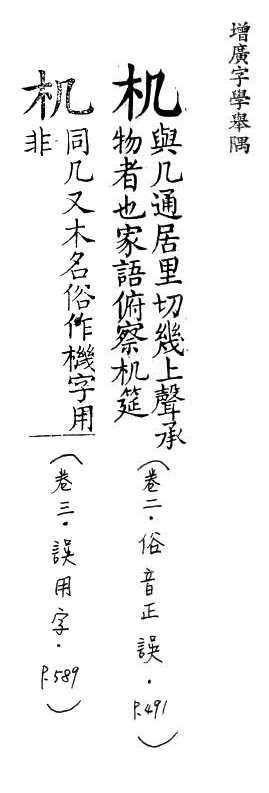 增廣字學舉隅
机 與几通居里切幾上聲承
物者也家語俯察机筵
（卷二．俗音正誤．P.491）
机 同几又木名俗作機字用
非
（卷三．誤用字．P.589）